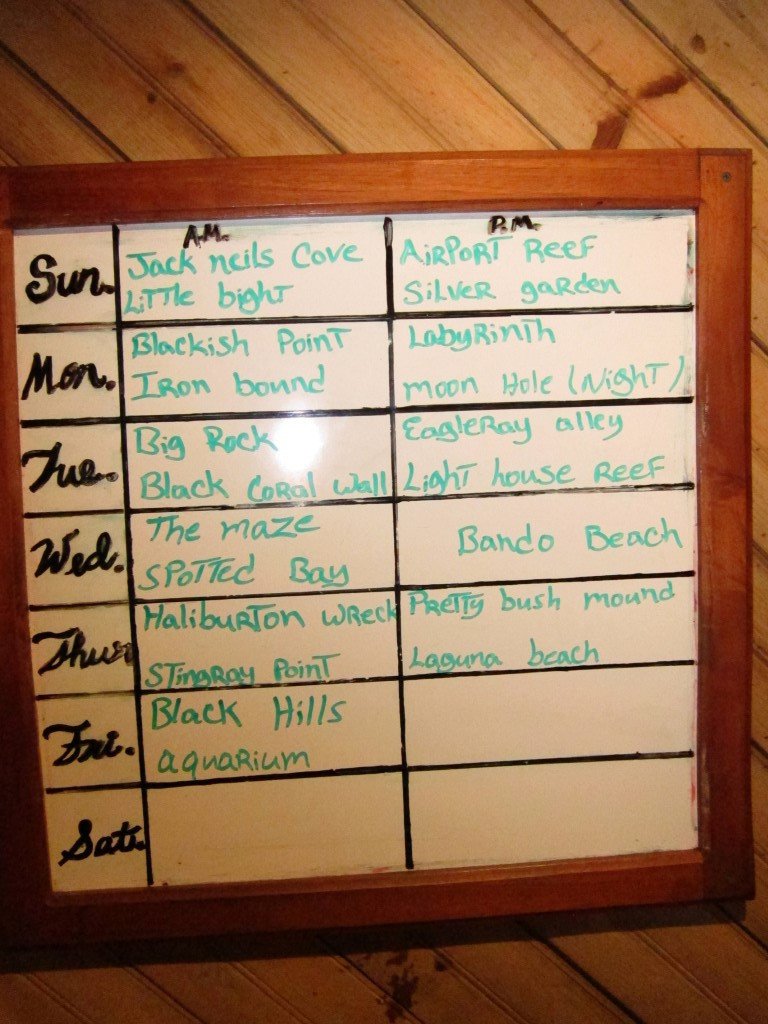 A.M. P.M.
Sun. Jack neils Cove AiRPORT Reef
LiTTle bighT SilveR gaRden
Mon. Blackish PoinT LabyRinth
IRon bound moon Hole (NighT)
Tue. Big Rock EagleRay alley
Black CoRal Wall LighT house Reef
Wed. The maze Bando Beach
SPoTTed Bay
Thur. HalibuRTon wReck PReTTy bush mound
STingRay PoinT Laguna beach
Fri. Black Hills
aquaRium
Sat.